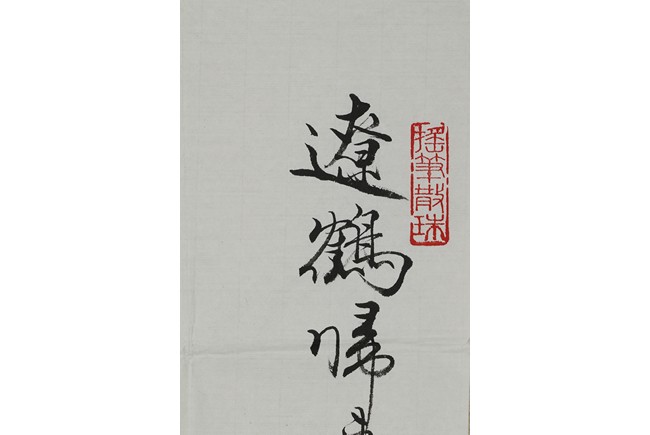 搖筆散珠
遼鶴帰